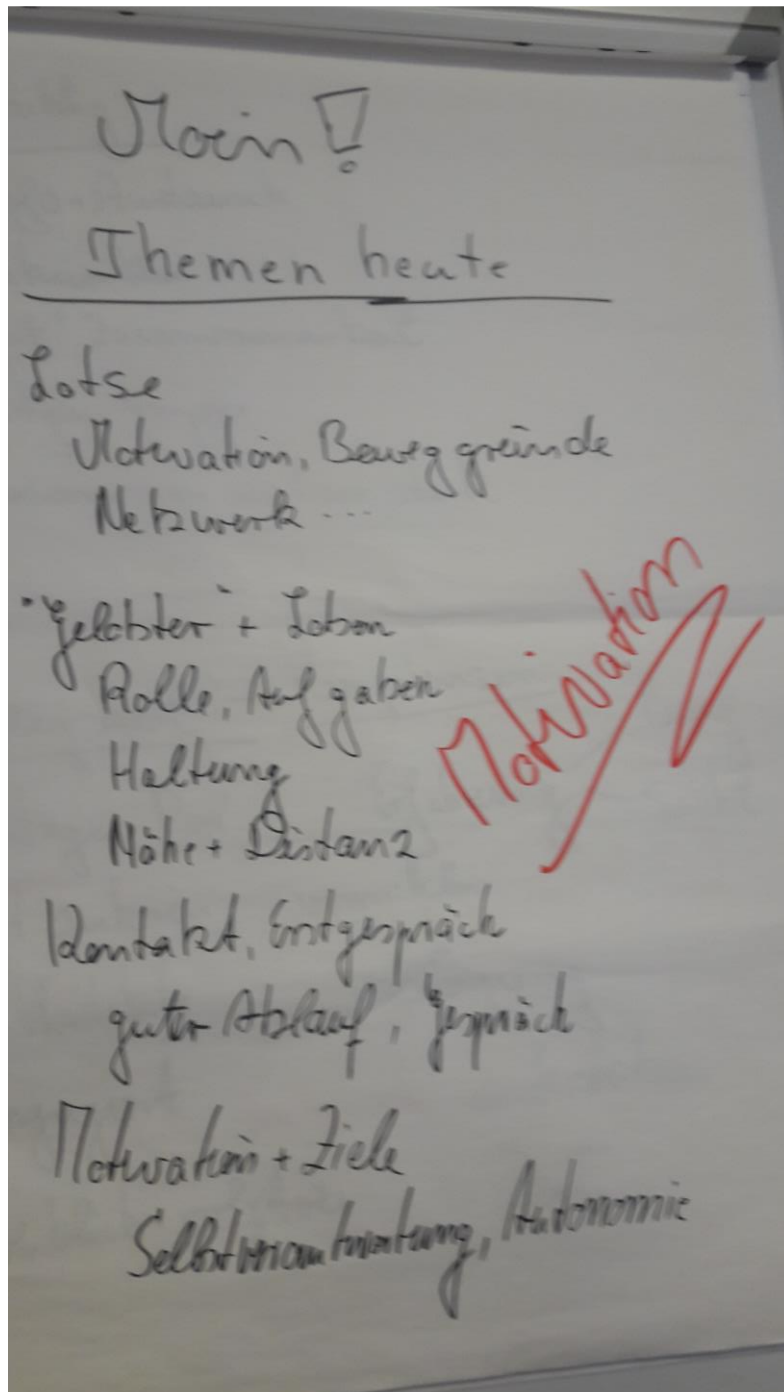 Moin!
Themen heute
Lotse
Motivation, Beweggründe
Netzwerk ...
"Gelobter" + Loben
Rolle, Aufgaben
Haltung
Nähe + Distanz
Motivation
Kontakt, Erstgespräch
guter Ablauf, Gespräch
Motivation + Ziele
Selbstverantwortung, Autonomie